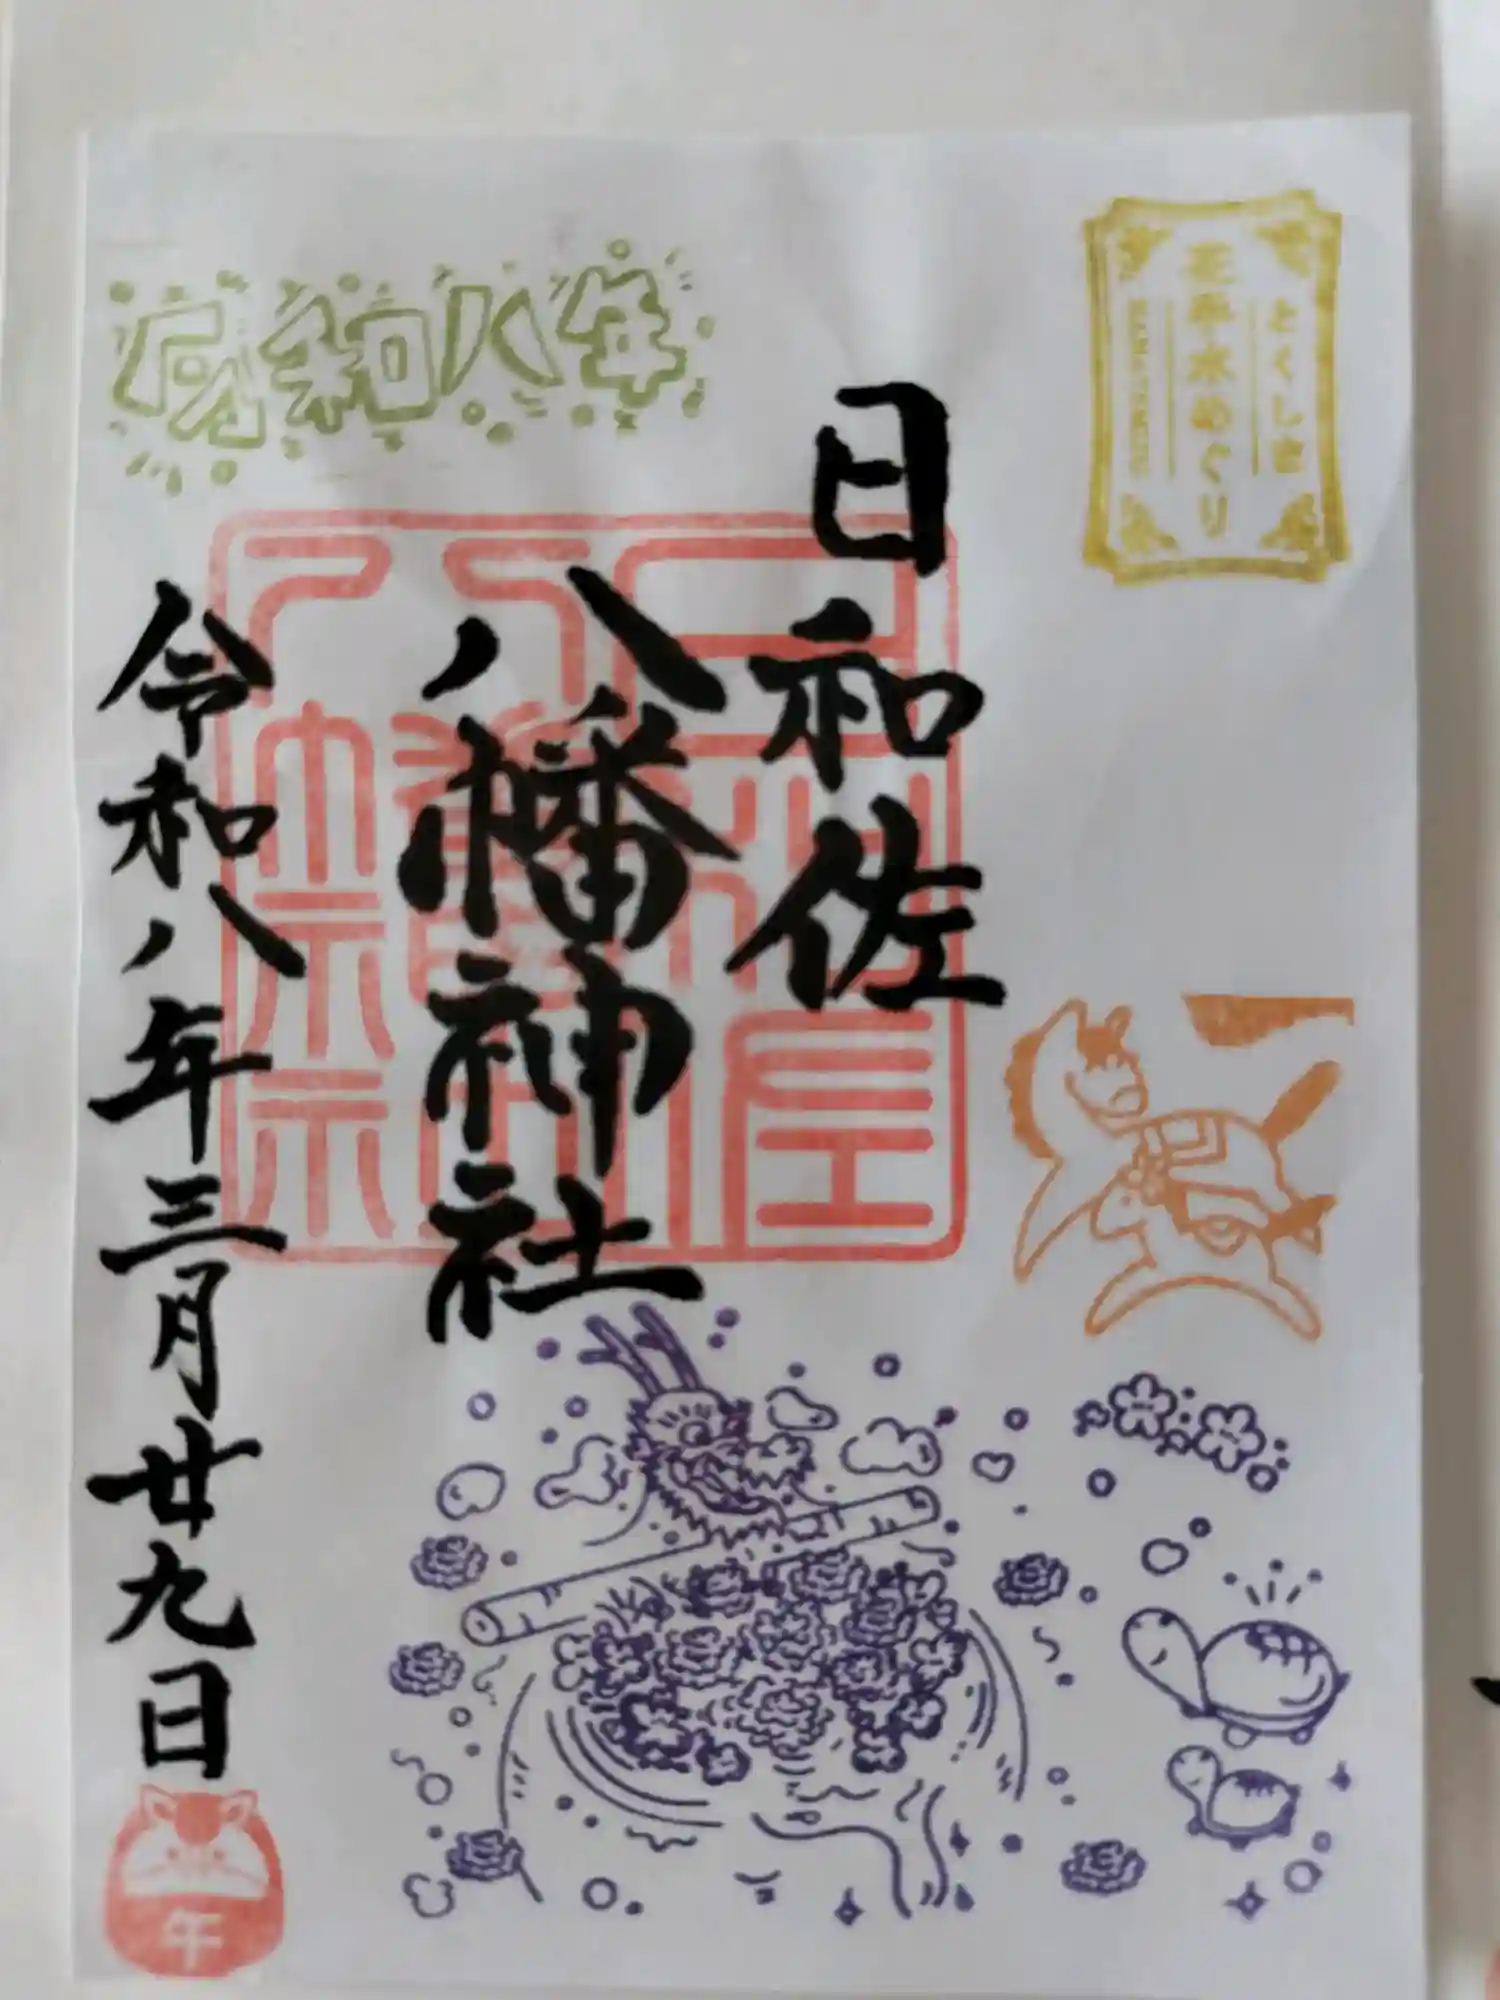 とくしま
花手水めぐり
HANATEMIZU
日和佐
八幡神社
令和八年
令和八年三月廿九日
午